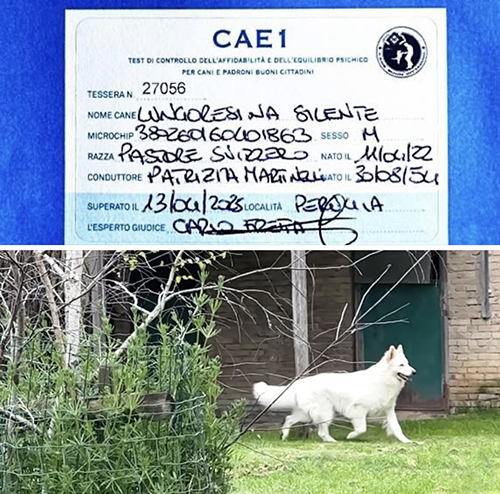 CAE1
TEST DI CONTROLLO DELL'AFFIDABILITÀ E DELL'EQUILIBRIO PSICHICO
PER CANI E PADRONI BUONI CITTADINI
TESSERA N. 27056
NOME CANE LUNGORESINA SILENTE
MICROCHIP 380260160001863 SESSO M
RAZZA PASTORE SVIZZERO NATO IL 11/04/22
CONDUTTORE PATRIZIA MARTINELLI NATO IL 30/08/54
SUPERATO IL 13/04/2025 LOCALITÀ PERUGIA
L'ESPERTO GIUDICE CARLO